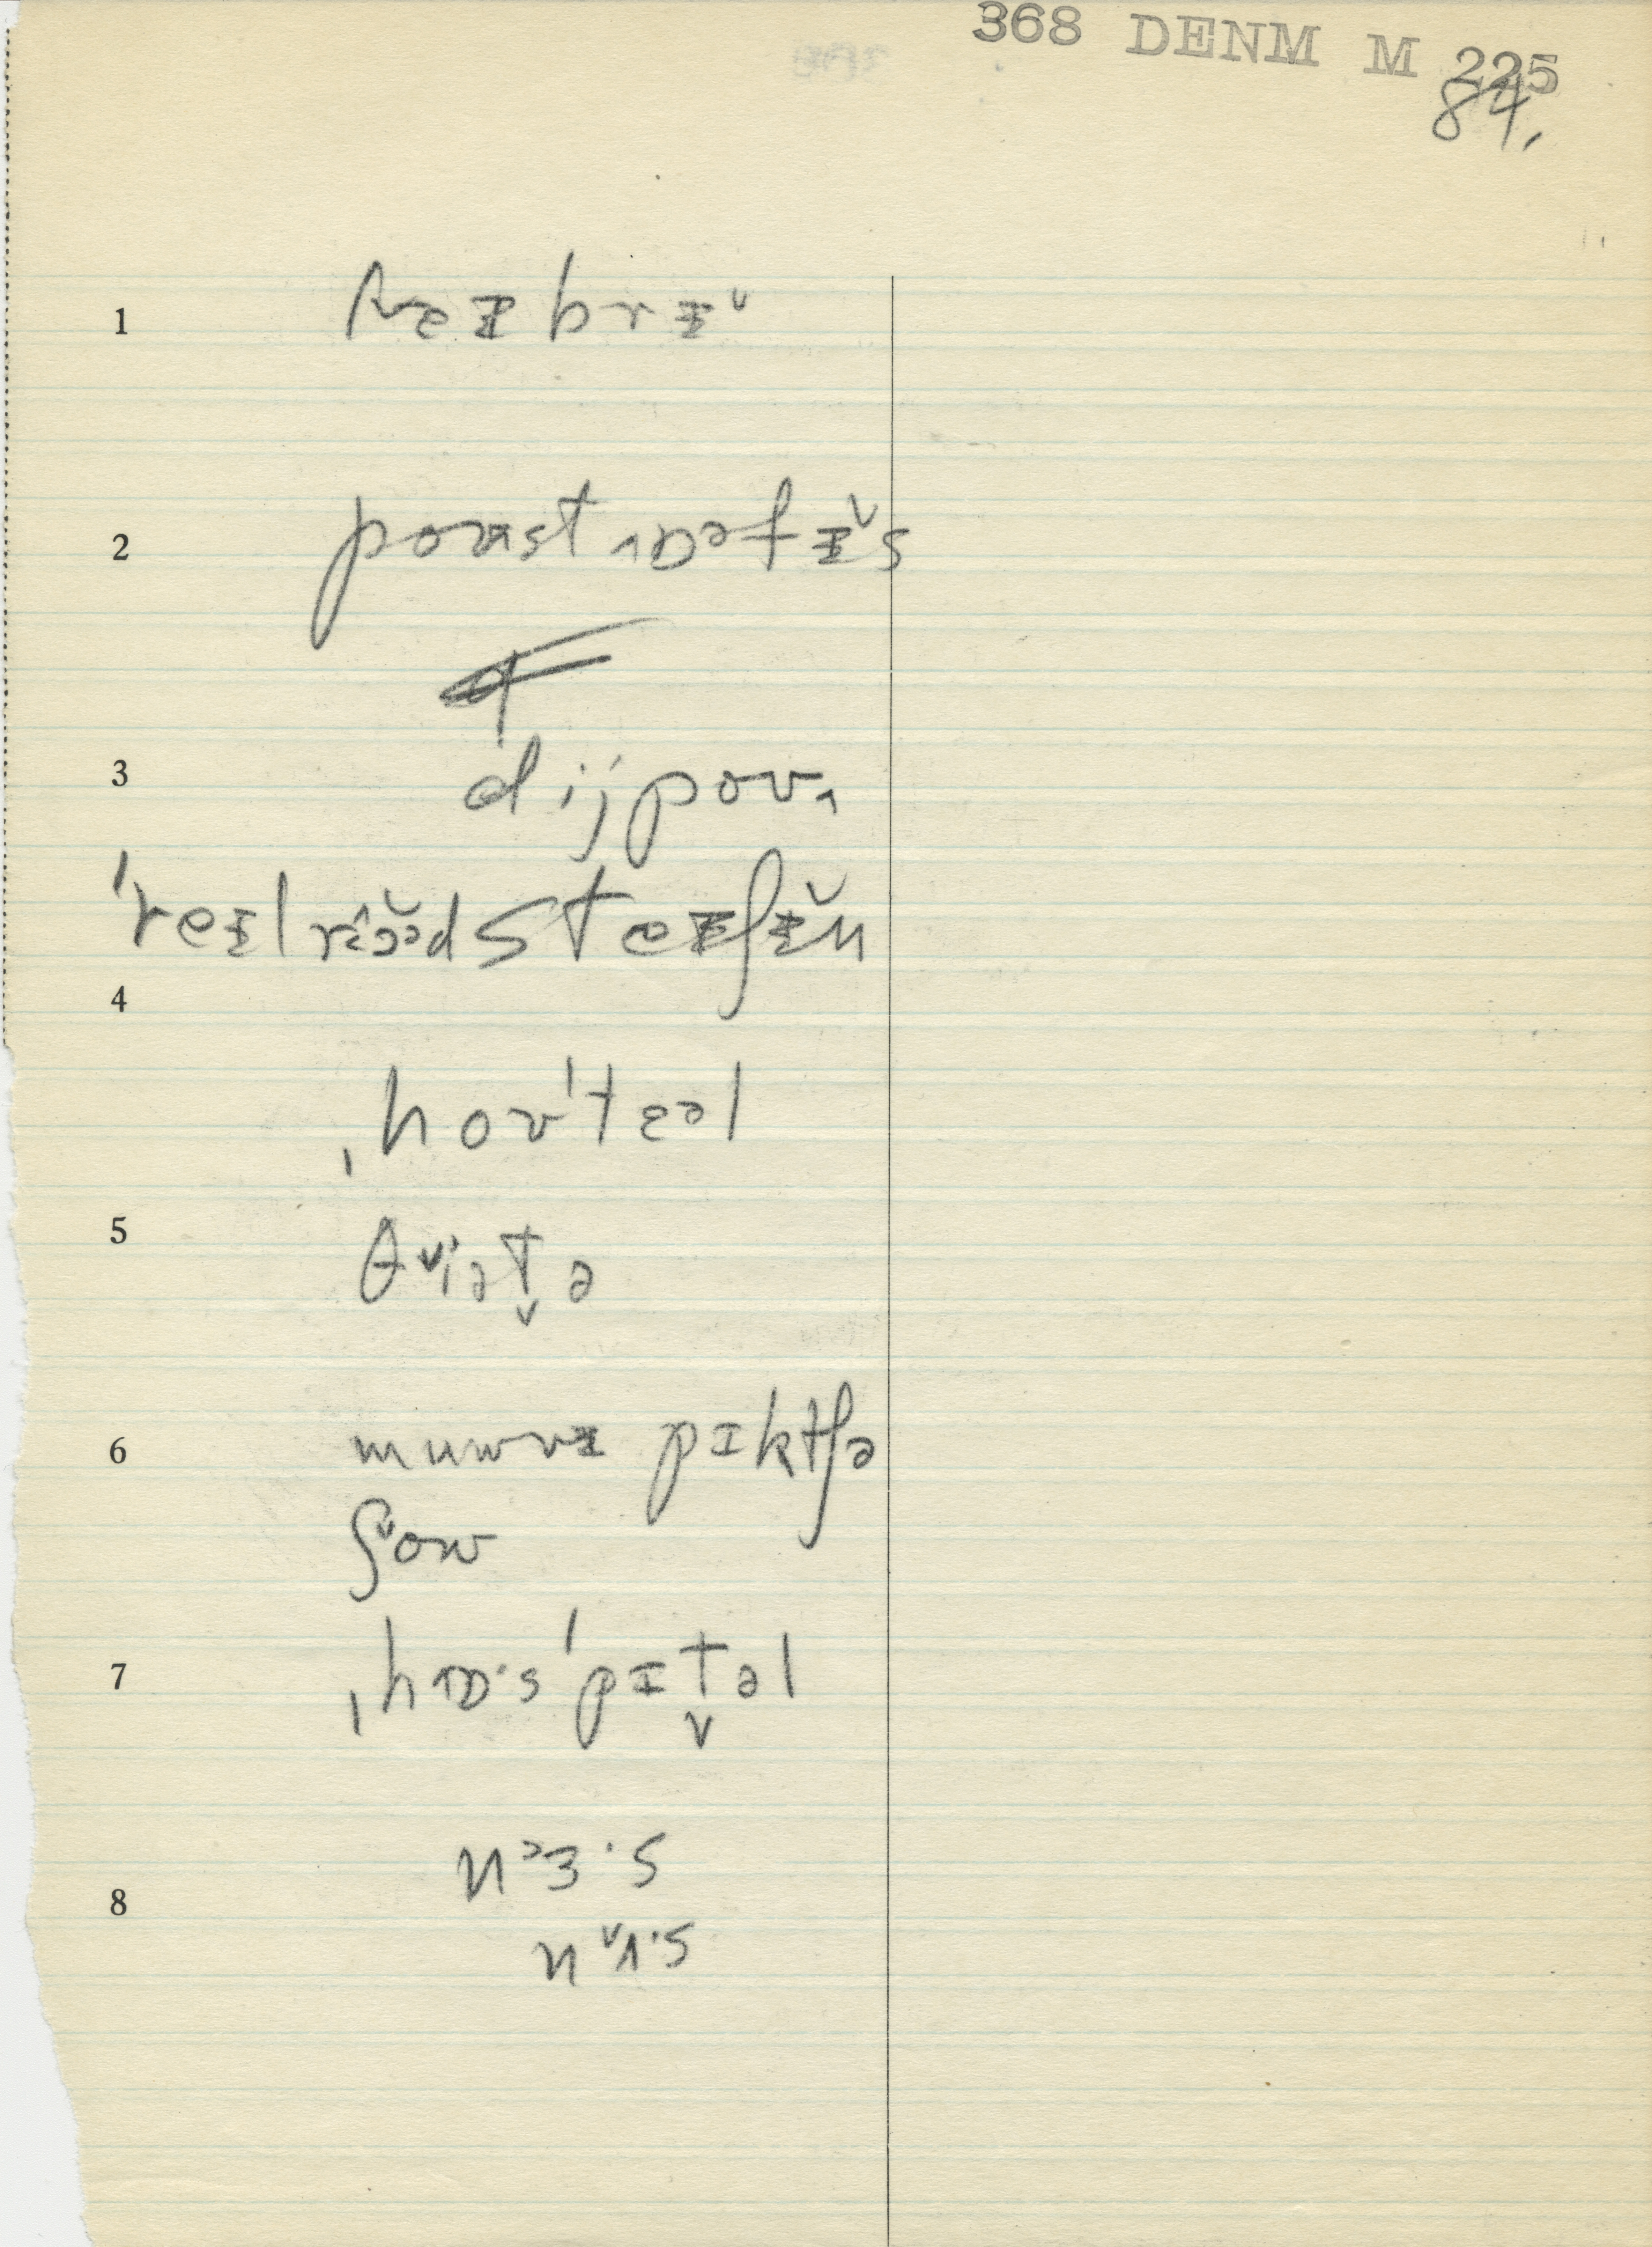 368 DENM M 225
84.
1
2 poʊst ˄ɒəfɪ̆s
3 dijpoʊ˄
ˈreɪlrɔ̆əd steɪʃɪ̆n
4
ˌhoʊˈtɛəl
5 θiət̬ə
6 muwvɪ pɪktʃə
ʃow
7 ˌhɒ·sˈpɪt̬əl
8 nɜ·s
nʌ·s